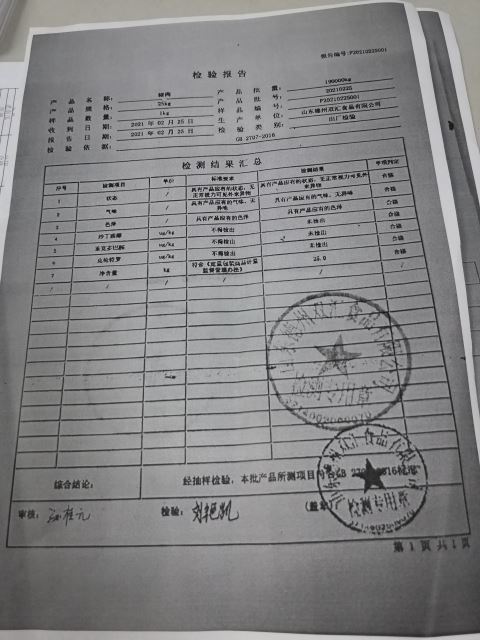 报告编号:P20210225001
检 验 报 告
产 品 名 称: 猪肉 产 品 批 量: 190000kg
产 品 规 格: 25kg 产 品 批 号: 20210225
样 品 数 量: 1kg 样 品 编 号: P20210225001
收 到 日 期: 2021 年 02 月 25 日 生 产 单 位: 山东德州双汇食品有限公司
报 告 日 期: 2021 年 02 月 25 日 检 验 类 别: 出厂检验
检 验 依 据: GB 2707-2016
检 测 结 果 汇 总
序号 检测项目 单位 标准要求 检测结果 单项判定
1 状态 / 具有产品应有的状态，无正常视力可见外来异物 具有产品应有的状态，无正常视力可见外来异物 合格
2 气味 / 具有产品应有的气味，无异味 具有产品应有的气味，无异味 合格
3 色泽 / 具有产品应有的色泽 具有产品应有的色泽 合格
4 沙丁胺醇 ug/kg 不得检出 未检出 合格
5 莱克多巴胺 ug/kg 不得检出 未检出 合格
6 克伦特罗 ug/kg 不得检出 未检出 合格
7 净含量 kg 符合《定量包装商品计量监督管理办法》 25.0 合格
/ / / / / /
综合结论: 经抽样检验，本批产品所测项目符合GB 2707-2016标准
审核: 检验: 刘艳凯 (盖章)
山东德州双汇食品有限公司
检测专用章
检测专用章
第 1 页 共 1 页